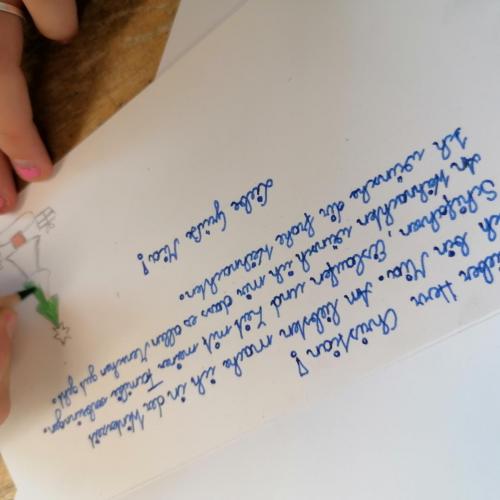 Lieber Herr Christian!
Ich bin Mia. Am liebsten mache ich in der Winterzeit
Schifahren, Eislaufen und Zeit mit meiner Familie verbringen.
An Weihnachten wünsch ich mir dass es allen Menschen gut geht.
Ich wünsche dir frohe Weihnachten.
Liebe Grüße Mia!